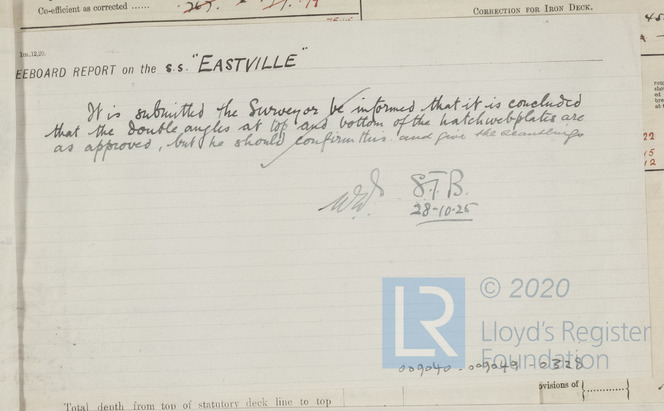 Co-efficient as corrected ......
CORRECTION FOR IRON DECK.
1m,12,20.
EEBOARD REPORT on the S.S. "EASTVILLE"
It is submitted the Surveyor be informed that it is concluded
that the double angles at top and bottom of the hatchwebplates are
as approved, but he should confirm this and give the scantlings
S.T.B.
28-10-25
LR
© 2020
Lloyd's Register
Foundation
009040-009049-0328
Total depth from top of statutory deck line to top
ovisions of